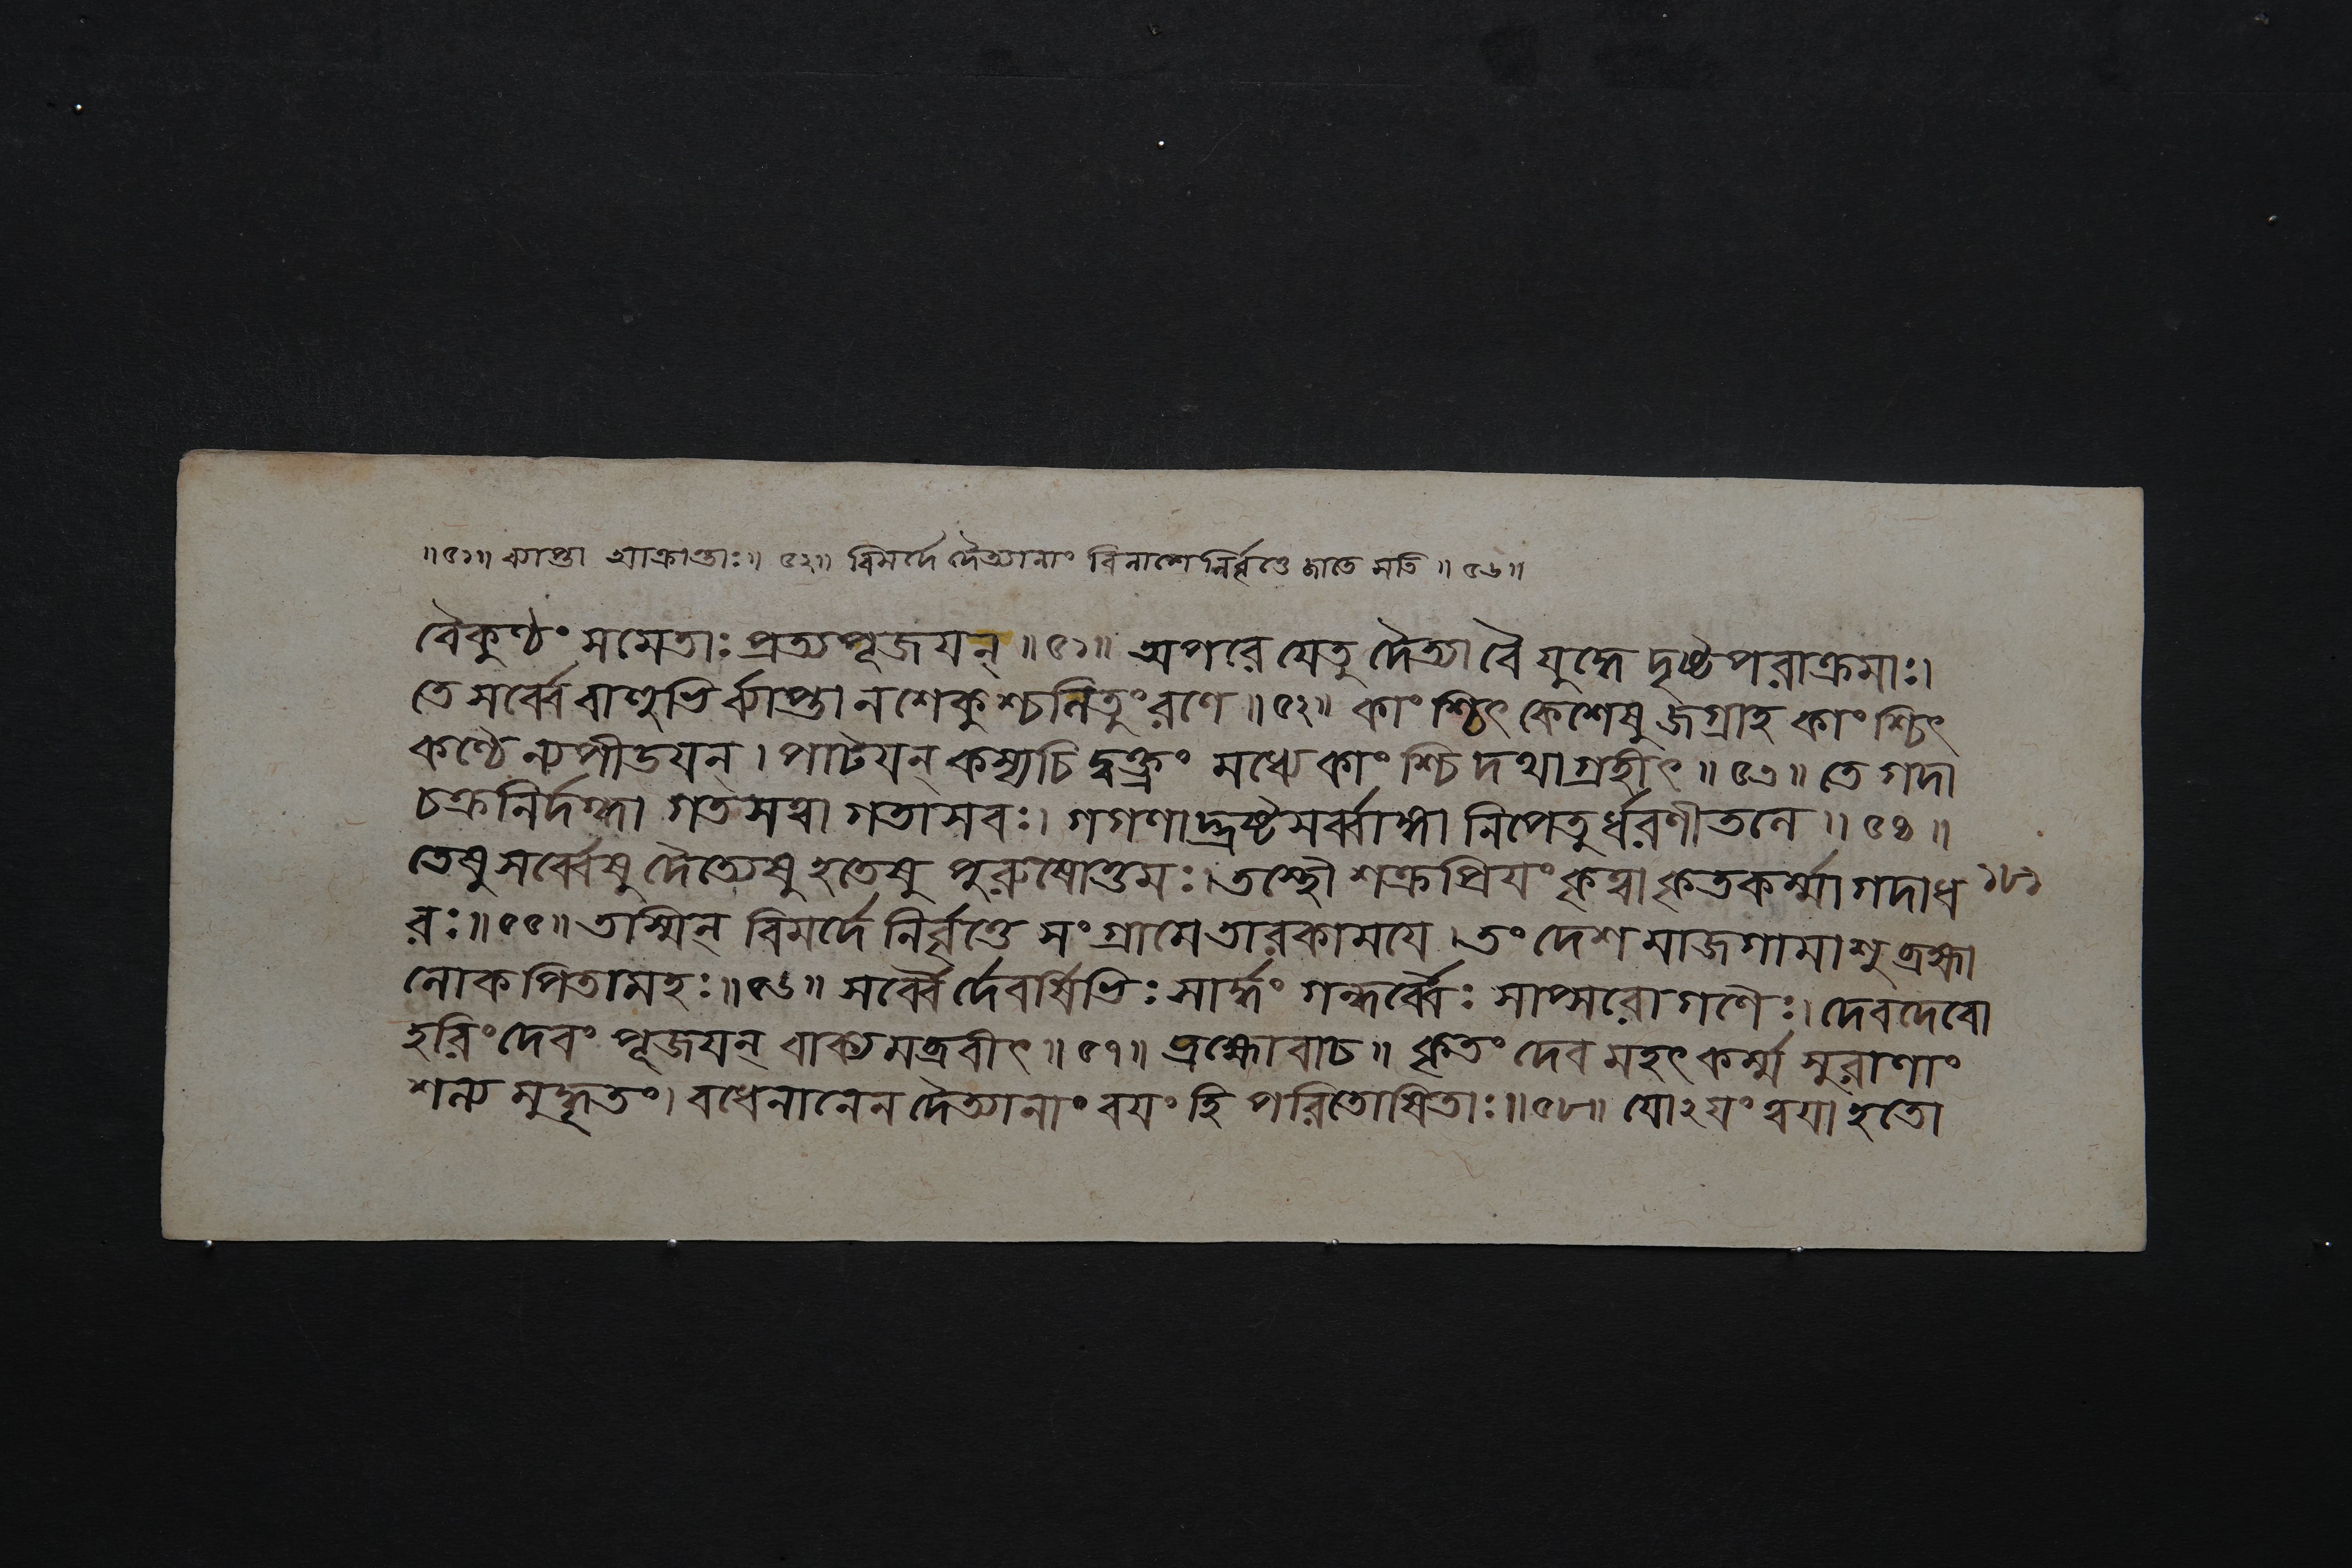 ॥৫১॥ ব্যাপ্তা আক্রান্তাঃ॥ ৫২॥ বিমর্দে দৈত্যানাং বিনাশে নির্বৃত্তে জাতে সতি ॥ ৫৬॥
বৈকুণ্ঠং সমেতাঃ প্রত্যপূজয়ন্ ॥ ৫১॥ অপরে যেতু দৈত্যা বৈ যুদ্ধে দৃষ্টপরাক্রমাঃ।
তে সর্ব্বে বাহুভির্ব্যাপ্তা ন শেকুশ্চলিতুং রণে ॥ ৫২॥ কাংশ্চিৎ কেশেষু জগ্রাহ কাংশ্চিৎ
কণ্ঠেন্যপীডয়ন্। পাটয়ন্ কস্যচিদ্বক্ত্রং মধ্যে কাংশ্চিদথাগ্রহীৎ ॥ ৫৩॥ তে গদা
চক্রনির্দগ্ধা গতসত্বা গতাসবঃ। গগণাদ্ভ্রষ্টসর্ব্বাঙ্গা নিপেতুর্ধরণীতলে ॥ ৫৪ ॥
তেষু সর্ব্বেষু দৈত্যেষু হতেষু পুরুষোত্তমঃ। তস্থৌ শক্রপ্রিয়ং কৃত্বা কৃতকর্ম্মা গদাধ ১৮১
রঃ॥ ৫৫॥ তস্মিন্ বিমর্দে নির্বৃত্তে সংগ্রামে তারকাময়ে। তং দেশমাজগামাশু ব্রহ্মা
লোকপিতামহঃ॥ ৫৬॥ সর্ব্বৈর্দেবর্ষিভিঃ সার্দ্ধং গন্ধর্ব্বৈঃ সাপ্সরোগণৈঃ। দেবদেবো
হরিং দেবং পূজয়ন্ বাক্যমব্রবীৎ ॥ ৫৭॥ ব্রহ্মোবাচ ॥ কৃতং দেব মহৎ কর্ম্ম সুরাণাং
শল্যমুদ্ধৃতং। বধেনানেন দৈত্যানাং বয়ং হি পরিতোষিতাঃ॥ ৫৮॥ যোঽয়ং ত্বয়া হতো